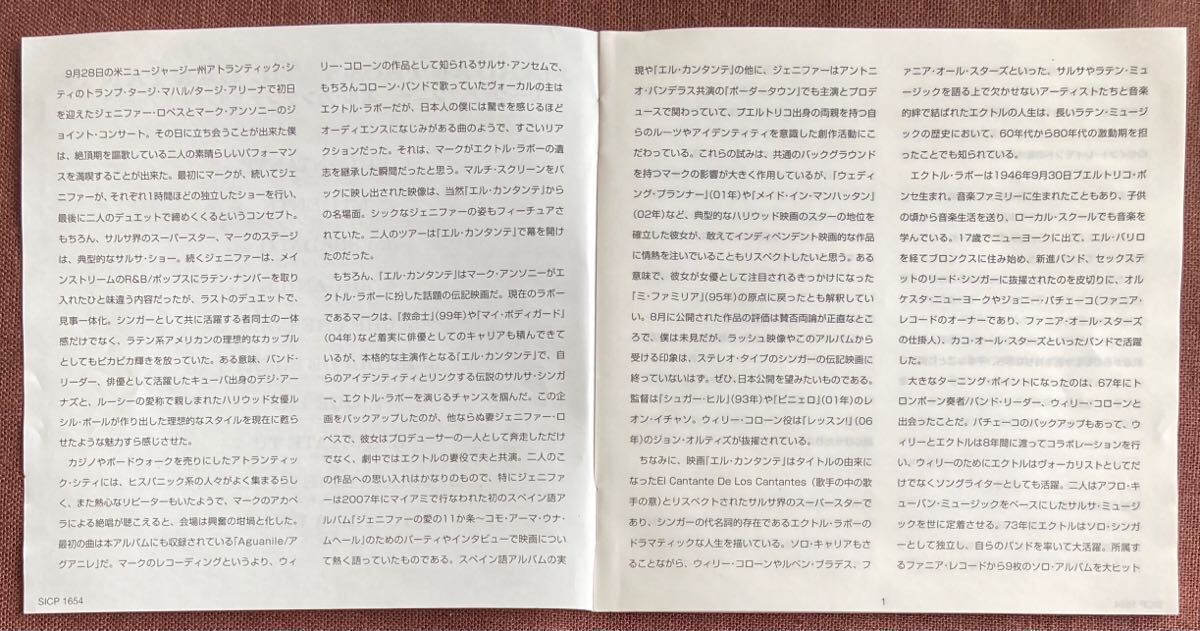 9月28日の米ニュージャージー州アトランティック・シ
ティのトランプ・タージ・マハル/タージ・アリーナで初日
を迎えたジェニファー・ロペスとマーク・アンソニーのジ
ョイント・コンサート。その日に立ち会うことが出来た僕
は、絶頂期を謳歌している二人の素晴らしいパフォーマン
スを満喫することが出来た。最初にマークが、続いてジェ
ニファーが、それぞれ1時間ほどの独立したショーを行い、
最後に二人のデュエットで締めくくるというコンセプト。
もちろん、サルサ界のスーパースター、マークのステージ
は、典型的なサルサ・ショー。続くジェニファーは、メイ
ンストリームのR&B/ポップスにラテン・ナンバーを取り
入れたひと味違う内容だったが、ラストのデュエットで、
見事一体化。シンガーとして共に活躍する者同士の一体
感だけでなく、ラテン系アメリカンの理想的なカップル
としてもピカピカ輝きを放っていた。ある意味、バンド・
リーダー、俳優として活躍したキューバ出身のデジ・アー
ナズと、ルーシーの愛称で親しまれたハリウッド女優ル
シル・ボールが作り出した理想的なスタイルを現在に甦ら
せたような魅力すら感じさせた。
カジノやボードウォークを売りにしたアトランティッ
ク・シティには、ヒスパニック系の人々がよく集まるらし
く、また熱心なリピーターもいたようで、マークのアカペ
ラによる絶唱が聴こえると、会場は興奮の坩堝と化した。
最初の曲は本アルバムにも収録されている「Aguanile/ア
グアニレ」だ。マークのレコーディングというより、ウィ
SICP 1654
リー・コローンの作品として知られるサルサ・アンセムで、
もちろんコローン・バンドで歌っていたヴォーカルの主は
エクトル・ラボーだが、日本人の僕には驚きを感じるほど
オーディエンスになじみがある曲のようで、すごいリア
クションだった。それは、マークがエクトル・ラボーの遺
志を継承した瞬間だったと思う。マルチ・スクリーンをバ
ックに映し出された映像は、当然『エル・カンタンテ』から
の名場面。シックなジェニファーの姿もフィーチュアさ
れていた。二人のツアーは『エル・カンタンテ』で幕を開け
たのだった。
もちろん、『エル・カンタンテ』はマーク・アンソニーがエ
クトル・ラボーに扮した話題の伝記映画だ。現在のラボー
であるマークは、『救命士』(99年)や『マイ・ボディガード』
(04年)など着実に俳優としてのキャリアも積んできて
いるが、本格的な主演作となる『エル・カンタンテ』で、自
らのアイデンティティとリンクする伝説のサルサ・シンガ
ー、エクトル・ラボーを演じるチャンスを掴んだ。この企
画をバックアップしたのが、他ならぬ妻ジェニファー・ロ
ペスで、彼女はプロデューサーの一人として奔走しただけ
でなく、劇中ではエクトルの妻役で夫と共演。二人のこ
の作品への思い入れはかなりのもので、特にジェニファ
ーは2007年にマイアミで行なわれた初のスペイン語ア
ルバム『ジェニファーの愛の11か条〜コモ・アーマ・ウナ・
ムヘール』のためのパーティやインタビューで映画につい
て熱く語っていたものである。スペイン語アルバムの実
現や『エル・カンタンテ』の他に、ジェニファーはアントニ
オ・バンデラス共演の『ボーダータウン』でも主演とプロデ
ュースで関わっていて、プエルトリコ出身の両親を持つ自
らのルーツやアイデンティティを意識した創作活動にこ
だわている。これらの試みは、共通のバックグラウンド
を持つマークの影響が大きく作用しているが、『ウェディ
ング・プランナー』(01年)や『メイド・イン・マンハッタン』
(02年)など、典型的なハリウッド映画のスターの地位を
確立した彼女が、敢えてインディペンデント映画的な作品
に情熱を注いでいることもリスペクトしたいと思う。ある
意味で、彼女が女優として注目されるきっかけになった
『ミ・ファミリア』(95年)の原点に戻ったとも解釈してい
い。8月に公開された作品の評価は賛否両論が正直なとこ
ろで、僕は未見だが、ラッシュ映像やこのアルバムから
受ける印象は、ステレオ・タイプのシンガーの伝記映画に
終っていないはず。ぜひ、日本公開を望みたいものである。
監督は『シュガー・ヒル』(93年)や『ピニェロ』(01年)のレ
オン・イチャソ。ウィリー・コローン役は『レッスン!』(06
年)のジョン・オルティズが抜擢されている。
ちなみに、映画『エル・カンタンテ』はタイトルの由来に
なったEl Cantante De Los Cantantes (歌手の中の歌
手の意)とリスペクトされたサルサ界のスーパースターで
あり、シンガーの代名詞的存在であるエクトル・ラボーの
ドラマティックな人生を描いている。ソロ・キャリアもさ
ることながら、ウィリー・コローンやルベン・ブラデス、フ
1
ァニア・オール・スターズといった、サルサやラテン・ミュ
ージックを語る上で欠かせないアーティストたちと音楽
的絆で結ばれたエクトルの人生は、長いラテン・ミュージ
ックの歴史において、60年代から80年代の激動期を担
ったことでも知られている。
エクトル・ラボーは1946年9月30日プエルトリコ・ポ
ンセ生まれ。音楽ファミリーに生まれたこともあり、子供
の頃から音楽生活を送り、ローカル・スクールでも音楽を
学んでいる。17歳でニューヨークに出て、エル・バリロ
を経てブロンクスに住み始め、新進バンド、セックステ
ットのリード・シンガーに抜擢されたのを皮切りに、オル
ケスタ・ニューヨークやジョニー・パチェーコ(ファニア・
レコードのオーナーであり、ファニア・オール・スターズ
の仕掛人)、カコ・オール・スターズといったバンドで活躍
した。
大きなターニング・ポイントになったのは、67年にト
ロンボーン奏者/バンド・リーダー、ウィリー・コローンと
出会ったことだ。パチェーコのバックアップもあって、ウ
ィリーとエクトルは8年間に渡ってコラボレーションを行
い、ウィリーのためにエクトルはヴォーカリストとしてだ
けでなくソングライターとしても活躍。二人はアフロ・キ
ューバン・ミュージックをベースにしたサルサ・ミュージ
ックを世に定着させる。73年にエクトルはソロ・シンガ
ーとして独立し、自らのバンドを率いて大活躍。所属す
るファニア・レコードから9枚のソロ・アルバムを大ヒット